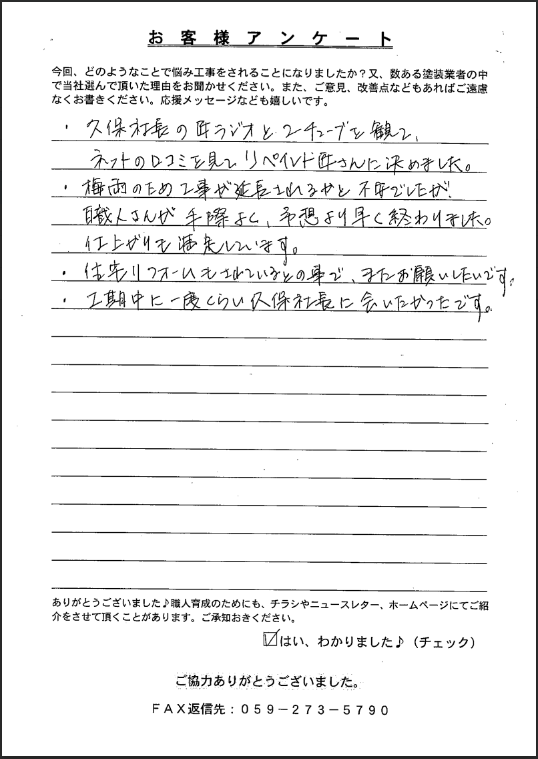 お客様アンケート
今回、どのようなことで悩み工事をされることになりましたか?又、数ある塗装業者の中
で当社選んで頂いた理由をお聞かせください。また、ご意見、改善点などもあればご遠慮
なくお書きください。応援メッセージなども嬉しいです。
・久保社長の匠ラジオとユーチューブを観て、
ネットの口コミを見てリペイント匠さんに決めました。
・梅雨のため工事が延長されるかと不安でしたが
職人さんが手際よく、予想より早く終わりました。
仕上がりも満足しています。
・住宅リフォームもされているとの事で、またお願いしたいです。
・工期中に一度くらい久保社長に会いたかったです。
ありがとうございました♪職人育成のためにも、チラシやニュースレター、ホームページにてご紹
介をさせて頂くことがあります。ご承知おきください。
☑はい、わかりました♪(チェック)
ご協力ありがとうございました。
FAX返信先:059-273-5790